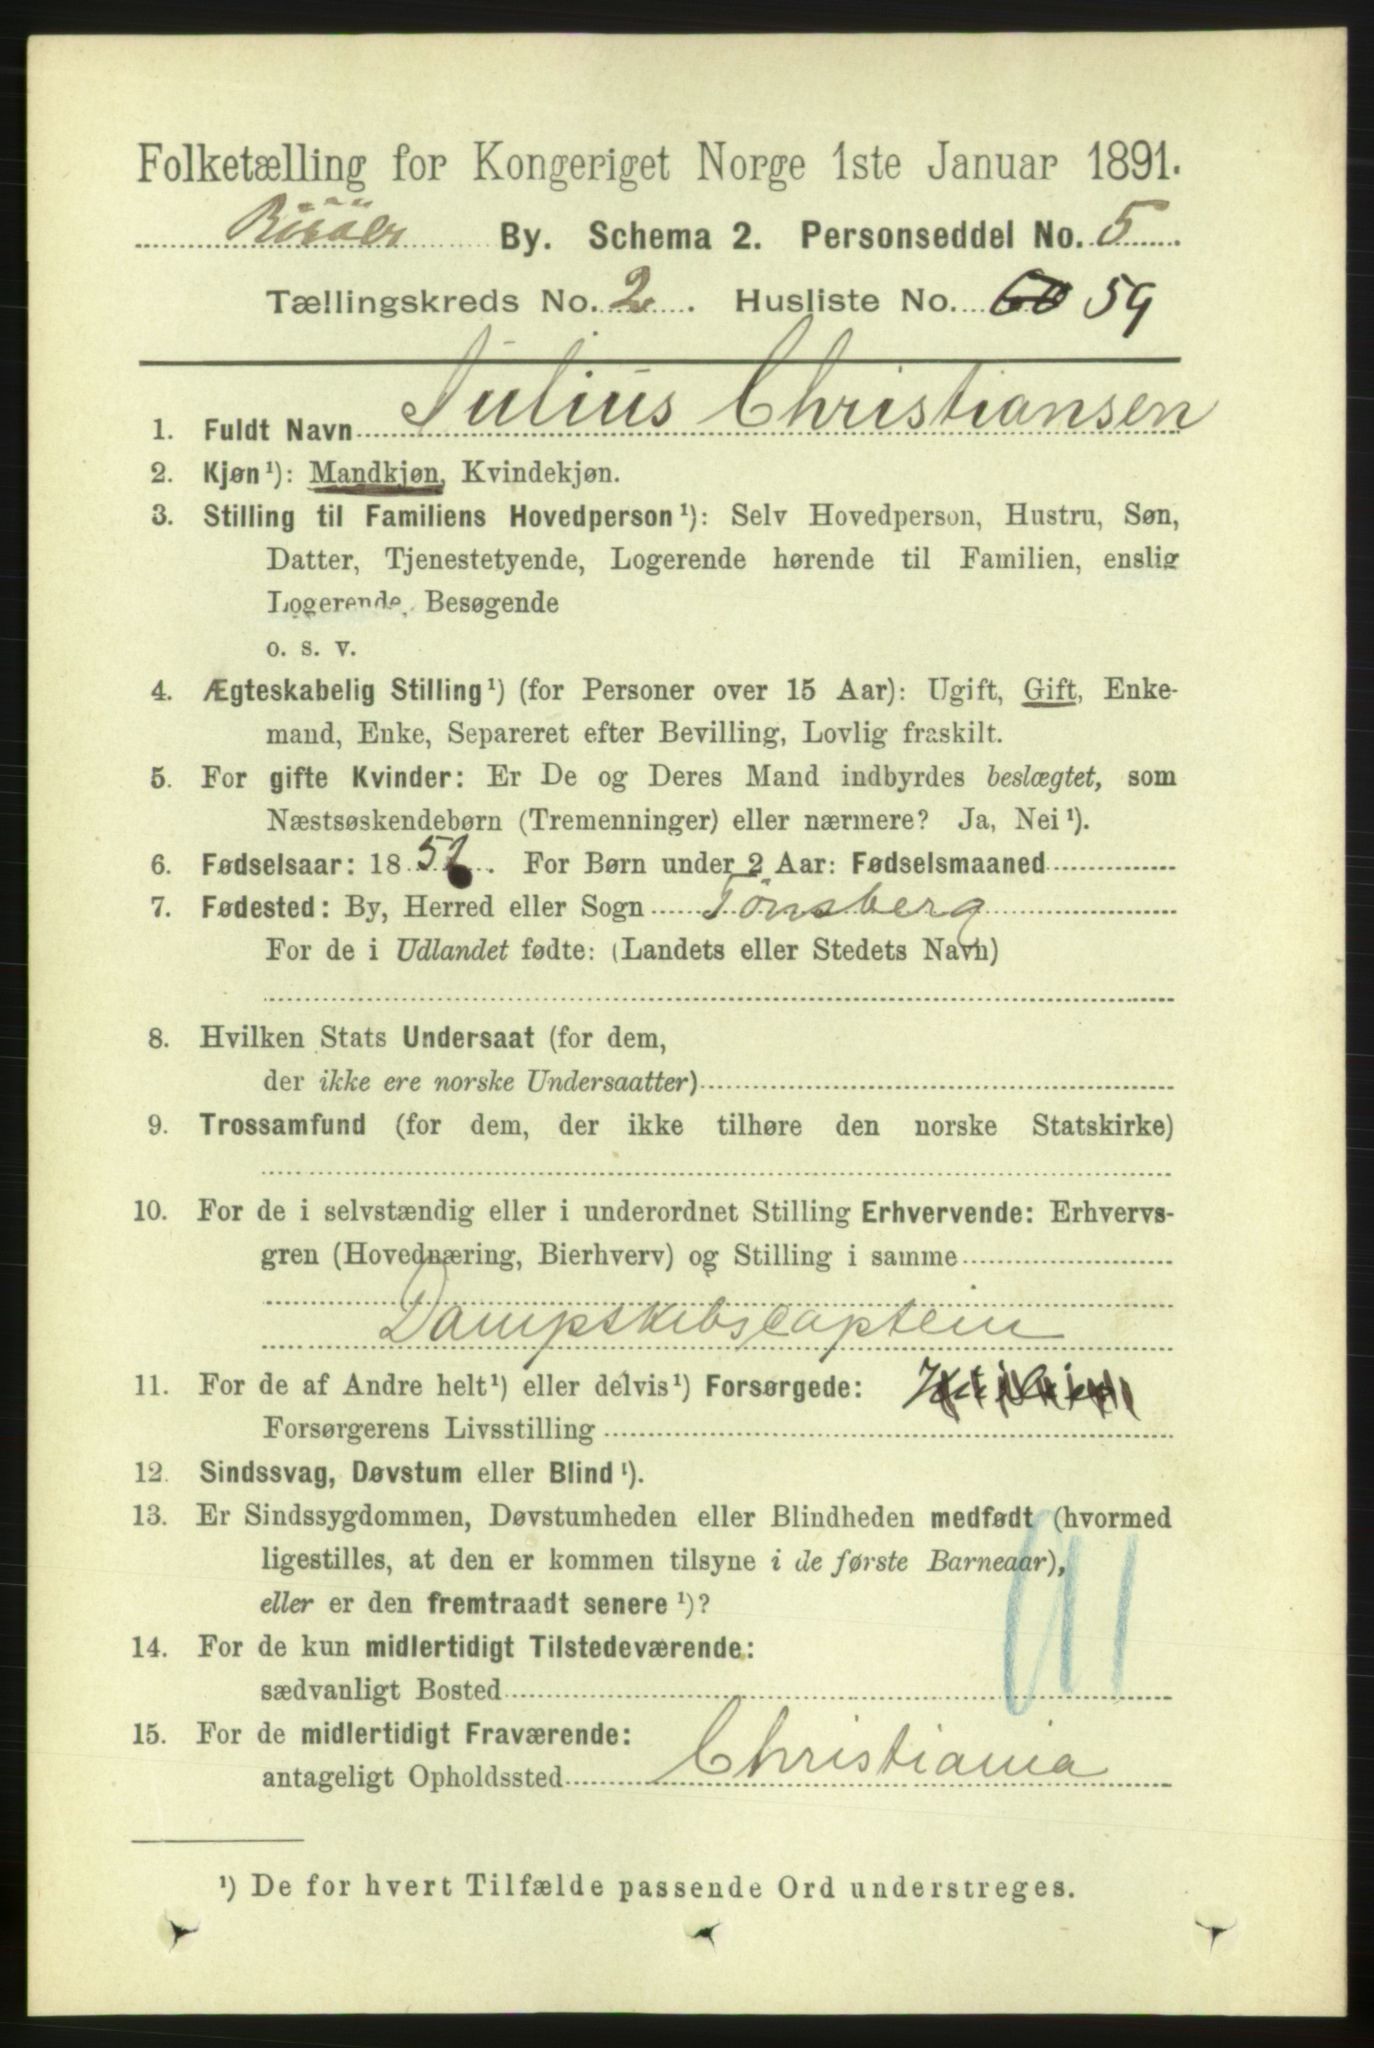 Folketælling for Kongeriget Norge 1ste Januar 1891.
By. Schema 2. Personseddel No. 5
Tællingskreds No. 2. Husliste No. 60 59
1. Fuldt Navn Julius Christiansen
2. Kjøn¹): Mandkjøn, Kvindekjøn.
3. Stilling til Familiens Hovedperson¹): Selv Hovedperson, Hustru, Søn,
Datter, Tjenestetyende, Logerende hørende til Familien, enslig
Logerende, Besøgende
o. s. v.
4. Ægteskabelig Stilling¹) (for Personer over 15 Aar): Ugift, Gift, Enke-
mand, Enke, Separeret efter Bevilling, Lovlig fraskilt.
5. For gifte Kvinder: Er De og Deres Mand indbyrdes beslægtet, som
Næstsøskendebørn (Tremenninger) eller nærmere? Ja, Nei¹).
6. Fødselsaar: 18 . For Børn under 2 Aar: Fødselsmaaned
7. Fødested: By, Herred eller Sogn Tönsberg
For de i Udlandet fødte: (Landets eller Stedets Navn)
8. Hvilken Stats Undersaat (for dem,
der ikke ere norske Undersaatter)
9. Trossamfund (for dem, der ikke tilhøre den norske Statskirke)
10. For de i selvstændig eller i underordnet Stilling Erhvervende: Erhvervs-
gren (Hovednæring, Bierhverv) og Stilling i samme
Dampskibscaptein
11. For de af Andre helt¹) eller delvis¹) Forsørgede:
Forsørgerens Livsstilling
12. Sindssvag, Døvstum eller Blind¹).
13. Er Sindssygdommen, Døvstumheden eller Blindheden medfødt (hvormed
ligestilles, at den er kommen tilsyne i de første Barneaar),
eller er den fremtraadt senere¹)?
14. For de kun midlertidigt Tilstedeværende:
sædvanligt Bosted
15. For de midlertidigt Fraværende:
antageligt Opholdssted Christiania
¹) De for hvert Tilfælde passende Ord understreges.